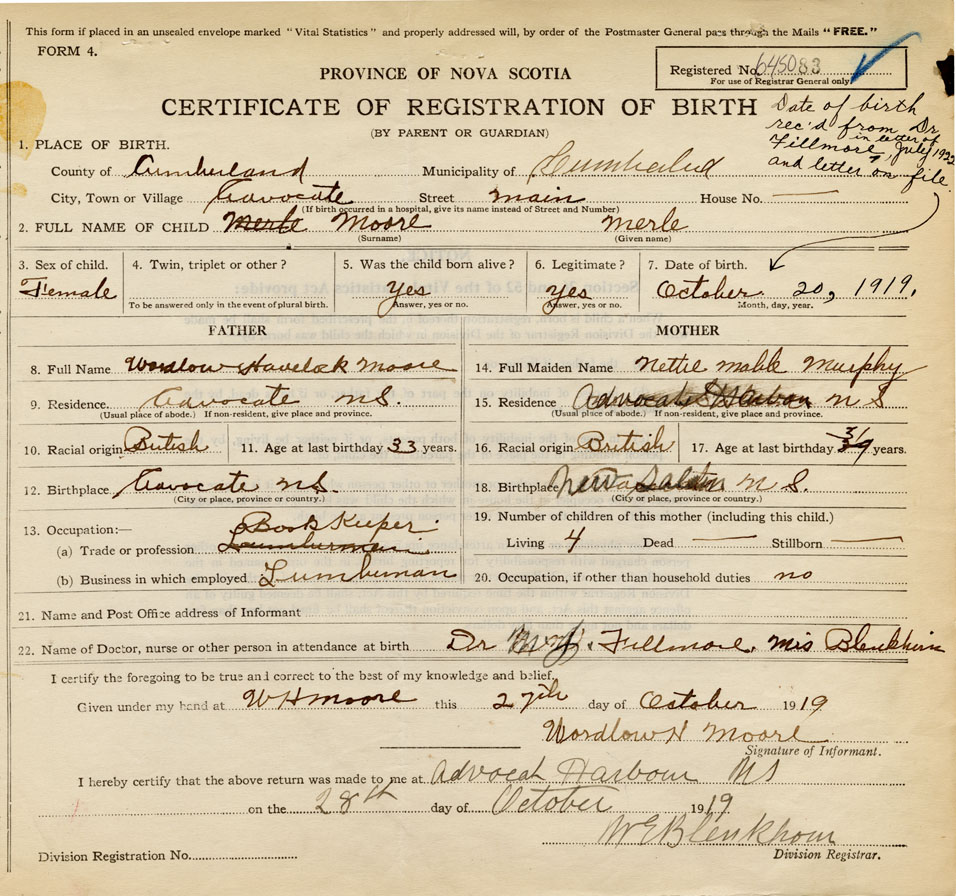 This form if placed in an unsealed envelope marked "Vital Statistics" and properly addressed will, by order of the Postmaster General pass through the Mails "FREE."
FORM 4.
Registered No. 645083
For use of Registrar General only
PROVINCE OF NOVA SCOTIA
CERTIFICATE OF REGISTRATION OF BIRTH
(BY PARENT OR GUARDIAN)
Date of birth
rec'd from Dr
in letter of
Fillmore, July 1922
and letter on file.
1. PLACE OF BIRTH.
County of Cumberland Municipality of
City, Town or Village Advocate Street main House No.
(If birth occurred in a hospital, give its name instead of Street and Number)
2. FULL NAME OF CHILD Merle Moore Merle
(Surname) (Given name)
3. Sex of child. 4. Twin, triplet or other? 5. Was the child born alive? 6. Legitimate? 7. Date of birth.
Female Yes yes October 20, 1919.
To be answered only in the event of plural birth. Answer, yes or no. Answer, yes or no. Month, day, year.
FATHER MOTHER
8. Full Name Wordlow Havelock Moore 14. Full Maiden Name Nettie Mable Murphy
9. Residence. Advocate N.S. 15. Residence Advocate N S
(Usual place of abode.) If non-resident, give place and province. (Usual place of abode.) If non-resident, give place and province.
10. Racial origin British 11. Age at last birthday 33 years. 16. Racial origin British 17. Age at last birthday 31 years.
12. Birthplace Advocate N.S. 18. Birthplace N S.
(City or place, province or country.) (City or place, province or country.)
13. Occupation:— 19. Number of children of this mother (including this child.)
Book Keeper
(a) Trade or profession Lumberman Living 4 Dead Stillborn
(b) Business in which employed Lumbuman 20. Occupation, if other than household duties no
21. Name and Post Office address of Informant
22. Name of Doctor, nurse or other person in attendance at birth Dr Fillmore, Mis Blenkhirn
I certify the foregoing to be true and correct to the best of my knowledge and belief.
Given under my hand at W H Moore this 27th day of October 1919
Wordlow H Moore
Signature of Informant.
I hereby certify that the above return was made to me at Advocat Harbour NS
on the 28th day of October 1919
W E Blenkhorn
Division Registration No. Division Registrar.